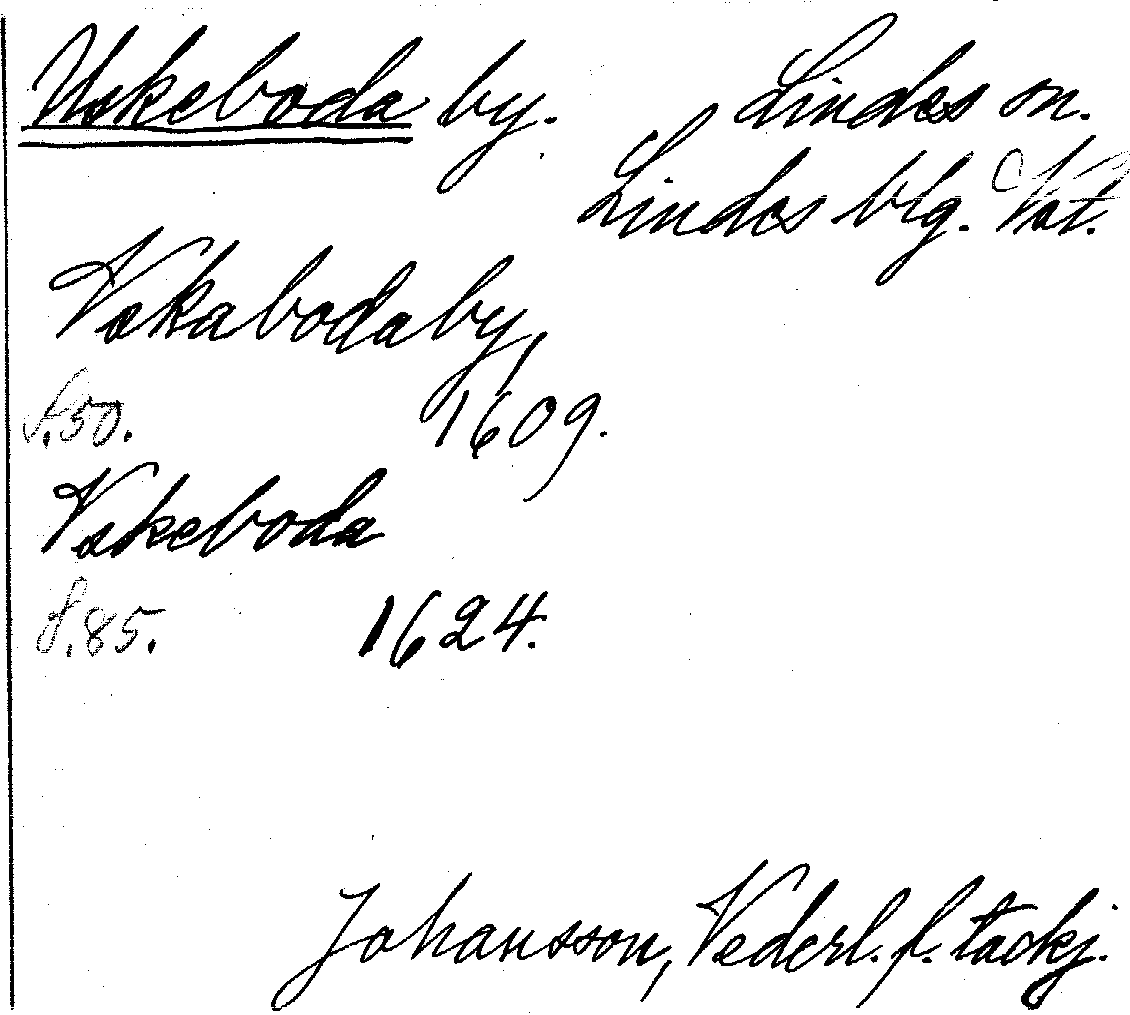 Uskeboda by. Lindes sn.
Lindes blg. Vst.
Vskaboda by,
s. 50. 1609.
Vskeboda
s. 85. 1624.
Johansson, Vederl. f. tackj.